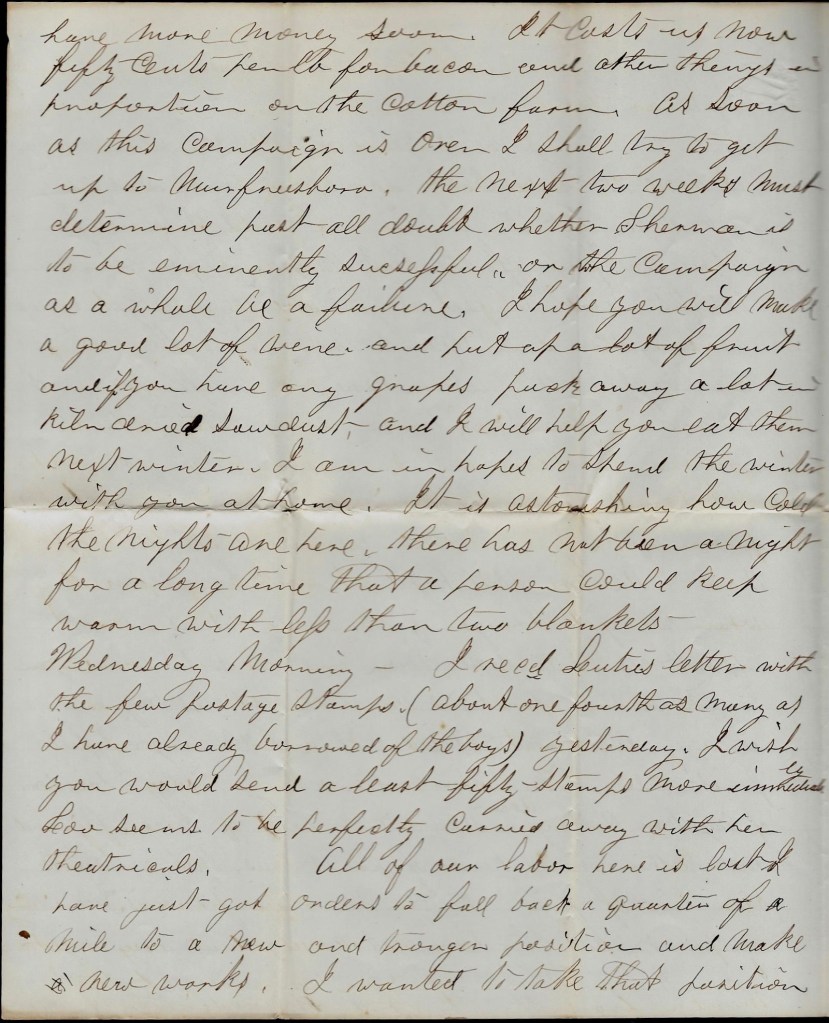 have more money soon. It costs us now
fifty cents per lb for bacon and other things in
proportion on the cotton farm. As soon
as this Campaign is over I shall try to get
up to Murfreesboro. the next two weeks must
determine past all doubt whether Sherman is
to be eminently sucsessful, or the Campaign
as a whole be a failure. I hope you will make
a good lot of wine. and put up a lot of fruit
and if you have any grapes pack away a lot in
Kiln dried sawdust, and I will help you eat them
next winter. I am in hopes to spend the winter
with you at home. It is astonishing how cold
the nights are here. there has not been a night
for a long time that a person could keep
warm with less than two blankets —
Wednesday Morning — I recd letter with
the few Postage stamps. (about one fourth as many as
I have already borrowed of the boys) yesterday. I wish
you would send a least fifty stamps more immediately
Lou seems to be perfectly carried away with her
theatricals. All of our labor here is lost I
have just got orders to fall back a quarter of a
mile to a new and tronger position and make
new works. I wanted to take that position